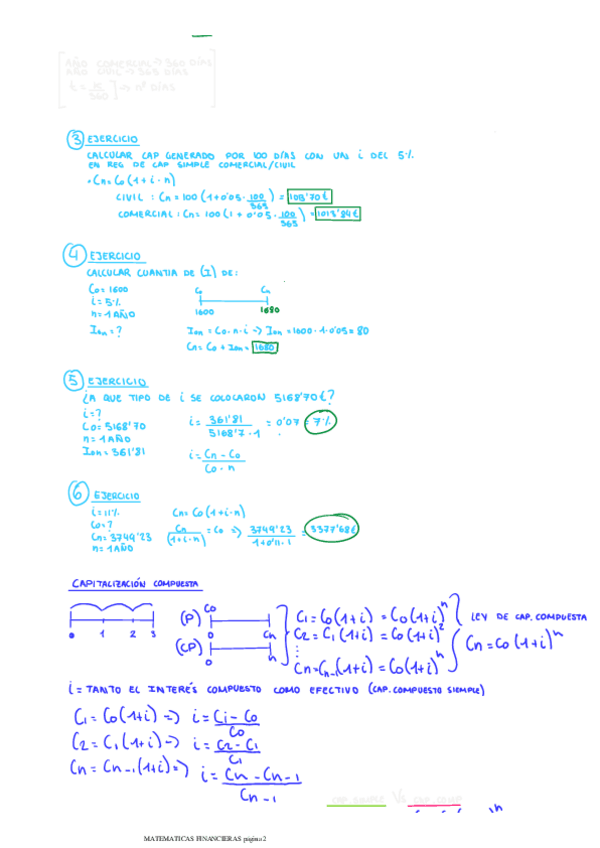 AÑO COMERCIAL → 360 DÍAS
AÑO CIVIL → 365 DÍAS
t = 15/360 ] → nº DÍAS
3 EJERCICIO
CALCULAR CAP GENERADO POR 100 DÍAS CON UN i DEL 5%
EN REG DE CAP SIMPLE COMERCIAL/CIVIL
• Cn = Co (1 + i · n)
CIVIL : Cn = 100 (1 + 0'05 · 100/365) = 103'70€
COMERCIAL : Cn = 100 (1 + 0'05 · 100/365) = 1013'84€
4 EJERCICIO
CALCULAR CUANTIA DE (I) DE:
Co = 1600
i = 5%
n = 1 AÑO
Ion = ?
Co Cn
1600 1680
Ion = Co · n · i => Ion = 1600 · 1 · 0'05 = 80
Cn = Co + Ion = 1680
5 EJERCICIO
¿A QUE TIPO DE i SE COLOCARON 5168'70€?
i = ?
Co = 5168'70
n = 1 AÑO
Ion = 361'81
i = 361'81 / 5168'7 · 1 = 0'07 = 7%
i = Cn - Co / Co · n
6 EJERCICIO
i = 11%
Co = ?
Cn = 3749'23
n = 1 AÑO
Cn = Co (1 + i · n)
Cn / (1 + i · n) = Co => 3749'23 / 1 + 0'11 · 1 = 3377'68€
CAPITALIZACIÓN COMPUESTA
0 1 2 3
(P) Co
0 Cn
(CP)
0 n
C1 = Co (1+i) = Co (1+i)^n
C2 = C1 (1+i) = Co (1+i)^2
⋮
Cn = Cn-1 (1+i) = Co (1+i)^n
LEY DE CAP. COMPUESTA
Cn = Co (1+i)^n
i = TANTO EL INTERÉS COMPUESTO COMO EFECTIVO (CAP. COMPUESTO SIEMPLE)
C1 = Co (1+i) => i = Ci - Co / Co
C2 = C1 (1+i) => i = C2 - C1 / C1
Cn = Cn-1 (1+i) => i = Cn - Cn-1 / Cn-1
CAP. SIMPLE Vs CAP. COMP.
MATEMATICAS FINANCIERAS página 2